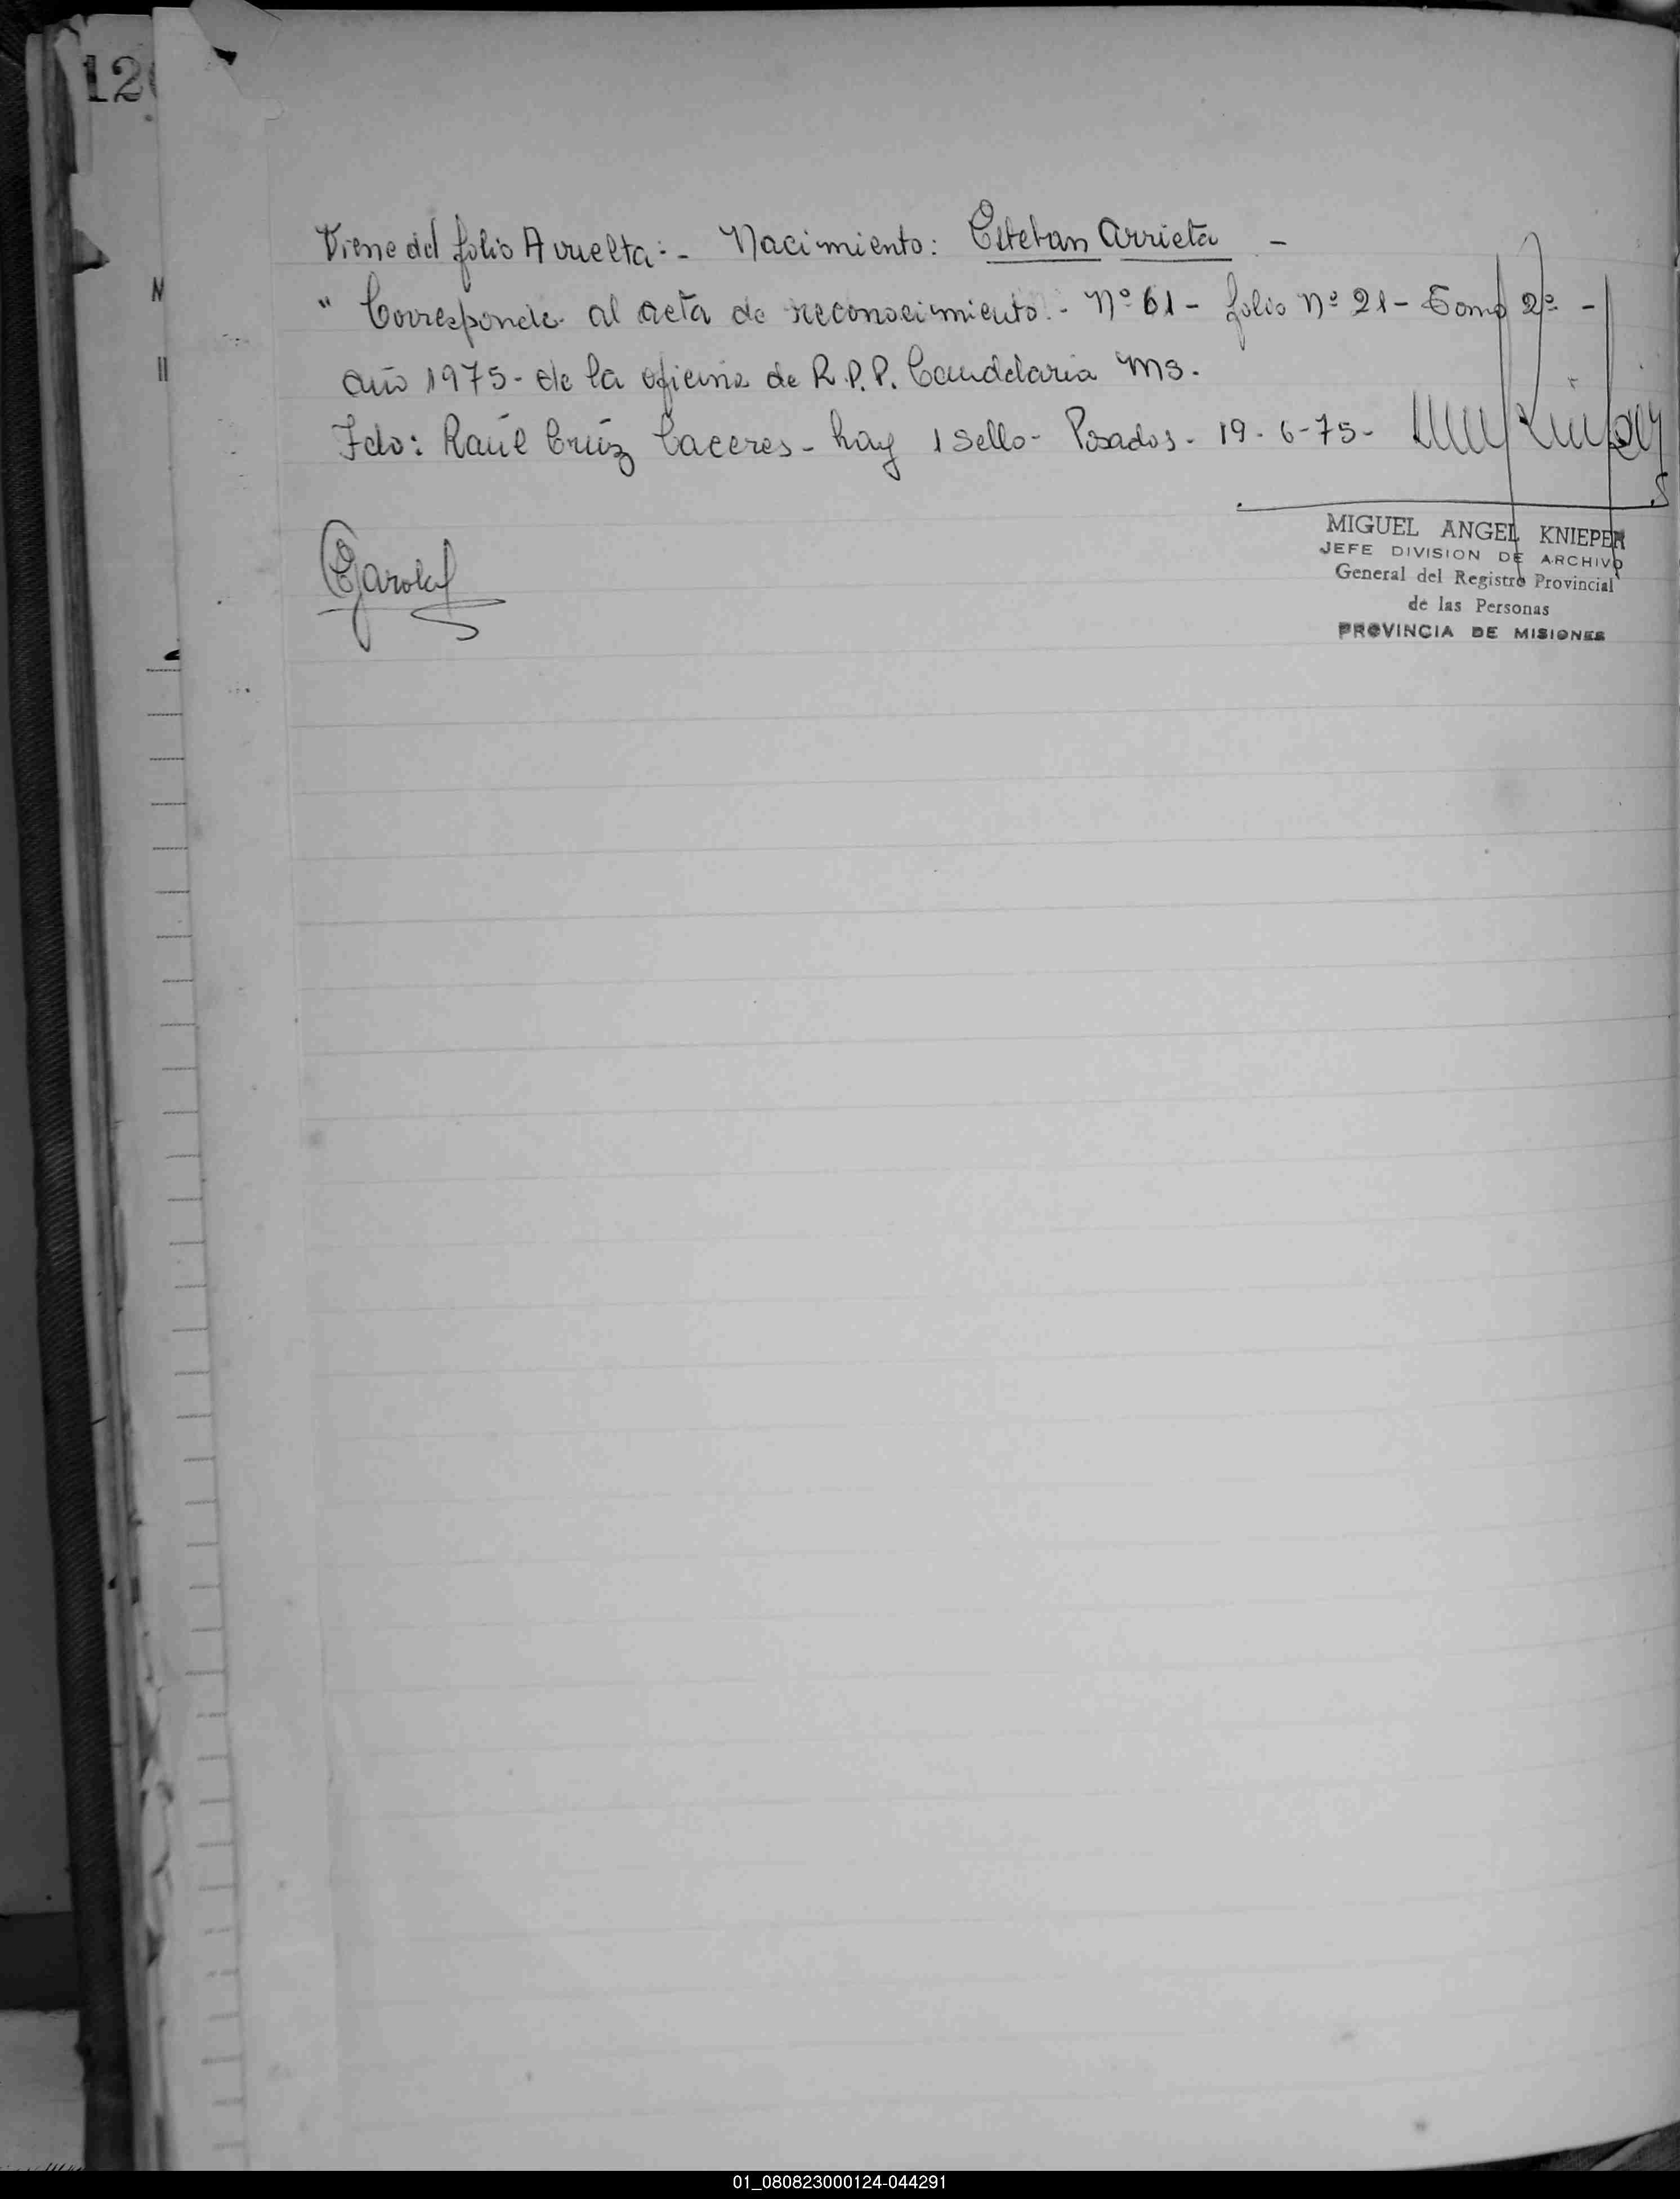 12
N
II
Viene del folio A vuelta:- Nacimiento: Esteban Arrieta -
" Corresponde al acta de reconocimiento.- Nº 61 - folio Nº 21 - Tomo 2º -
año 1975- de la oficina de R.P.P. Candelaria Ms.
Fdo: Raúl Crúz Caceres - hay 1 sello - Posadas - 19-6-75-
MIGUEL ANGEL KNIEPER
JEFE DIVISION DE ARCHIVO
General del Registro Provincial
de las Personas
PROVINCIA DE MISIONES
01_080823000124-044291